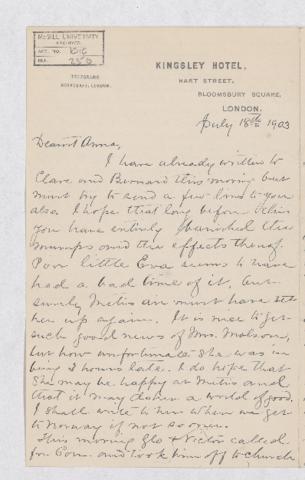 McGILL UNIVERSITY
ARCHIVES
ACC. NO.
REF.
TELEGRAMS
LONDON.
KINGSLEY HOTEL,
HART STREET,
BLOOMSBURY SQUARE,
LONDON.
July 18th 1903
Dearest Anna,
I have already written to
Clare and Bernard this morning but
must try to send a few lines to you
also. I hope that long before this
you have entirely banished the
mumps and the effects thereof.
Poor little Eva seems to have
had a bad time of it, but
surely Metis air must have set
her up again. It is nice to get
such good news of Mrs. Molson,
but how unfortunate she was in
being 2 hours late. I do hope that
she may be happy at Metis and
that it may do her a world of good.
I shall write to her when we get
to Norway if not sooner.
This morning Glo & Victor called
for Com. and took him off to church